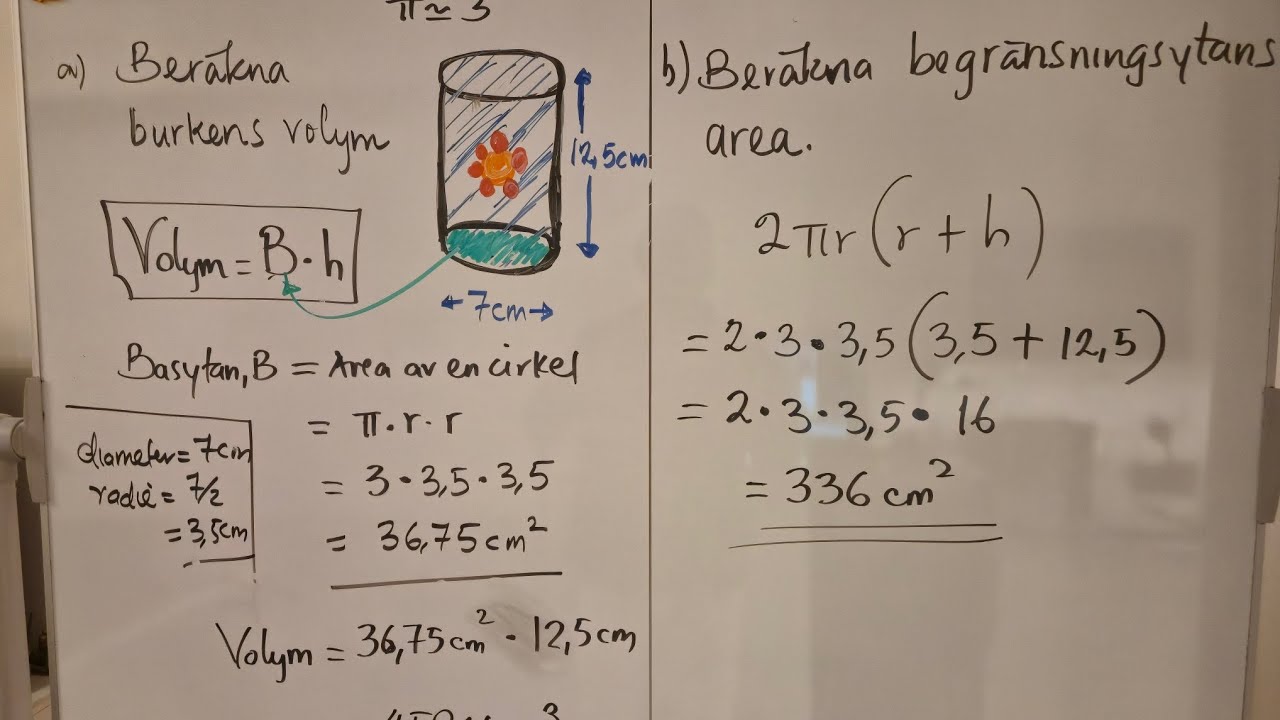 π ≃ 3
a) Beräkna
burkens volym
12,5cm
Volym = B · h
7cm
Basytan, B = Area av en cirkel
= π · r · r
= 3 · 3,5 · 3,5
= 36,75 cm²
diameter = 7cm
radie = 7/2
= 3,5cm
Volym = 36,75 cm² · 12,5 cm
b) Beräkna begränsningsytans
area.
2πr(r + h)
= 2 · 3 · 3,5 (3,5 + 12,5)
= 2 · 3 · 3,5 · 16
= 336 cm²